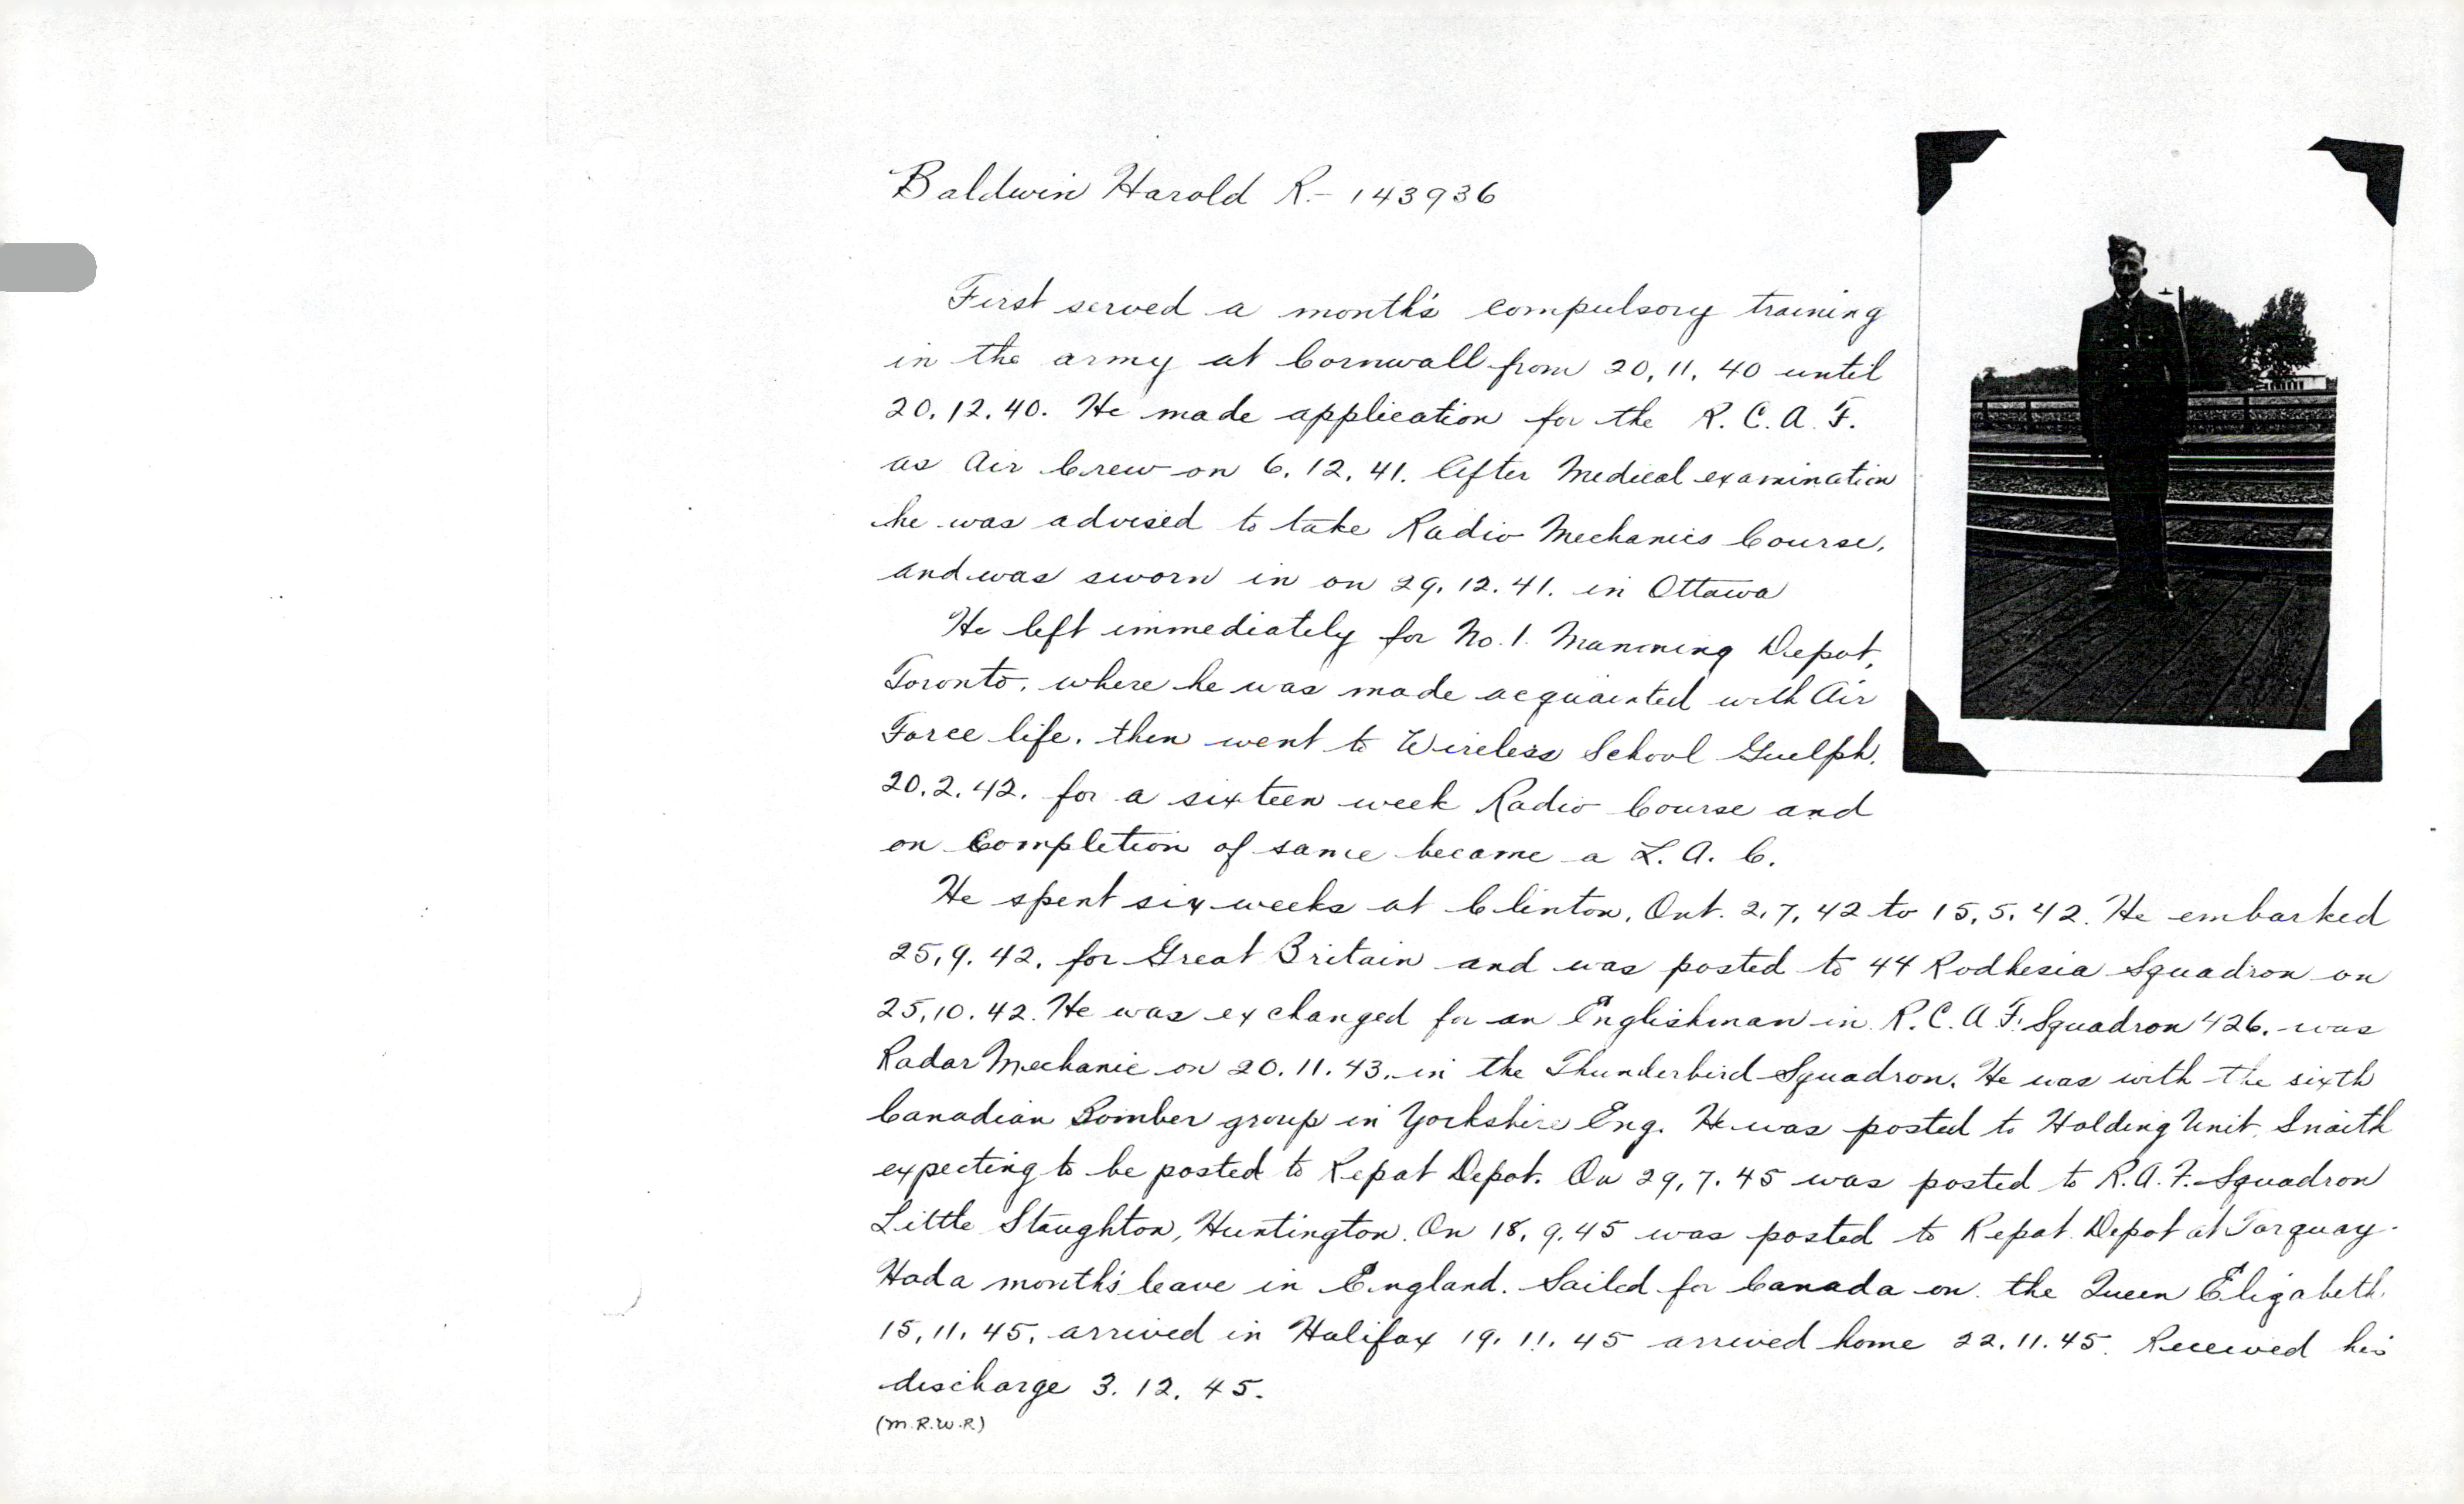 Baldwin Harold R.- 143936
First served a month's compulsory training
in the army at Cornwall from 20.11.40 until
20.12.40. He made application for the R.C.A.F.
as Air Crew on 6.12.41. After Medical examination
he was advised to take Radio Mechanics Course,
and was sworn in on 29.12.41. in Ottawa
He left immediately for No.1. Manning Depot,
Toronto, where he was made acquainted with Air
Force life. then went to Wireless School Guelph,
20.2.42. for a sixteen week Radio Course and
on Completion of same became a L.A.C.
He spent six weeks at Clinton, Ont. 2.7.42 to 15.5.42. He embarked
25.9.42. for Great Britain and was posted to 44 Rodhesia Squadron on
25.10.42. He was exchanged for an Englishman in R.C.A.F. Squadron 426. was
Radar Mechanic on 20.11.43. in the Thunderbird Squadron. He was with the sixth
Canadian Bomber group in Yorkshire Eng. He was posted to Holding Unit, Snaith
expecting to be posted to Repat Depot. On 29.7.45 was posted to R.A.F. Squadron
Little Staughton, Huntington. On 18.9.45 was posted to Repat. Depot at Torquay.
Had a month's leave in England. Sailed for Canada on the Queen Elizabeth.
15.11.45. arrived in Halifax 19.11.45 arrived home 22.11.45. Received his
discharge 3.12.45.
(M.R.W.R)